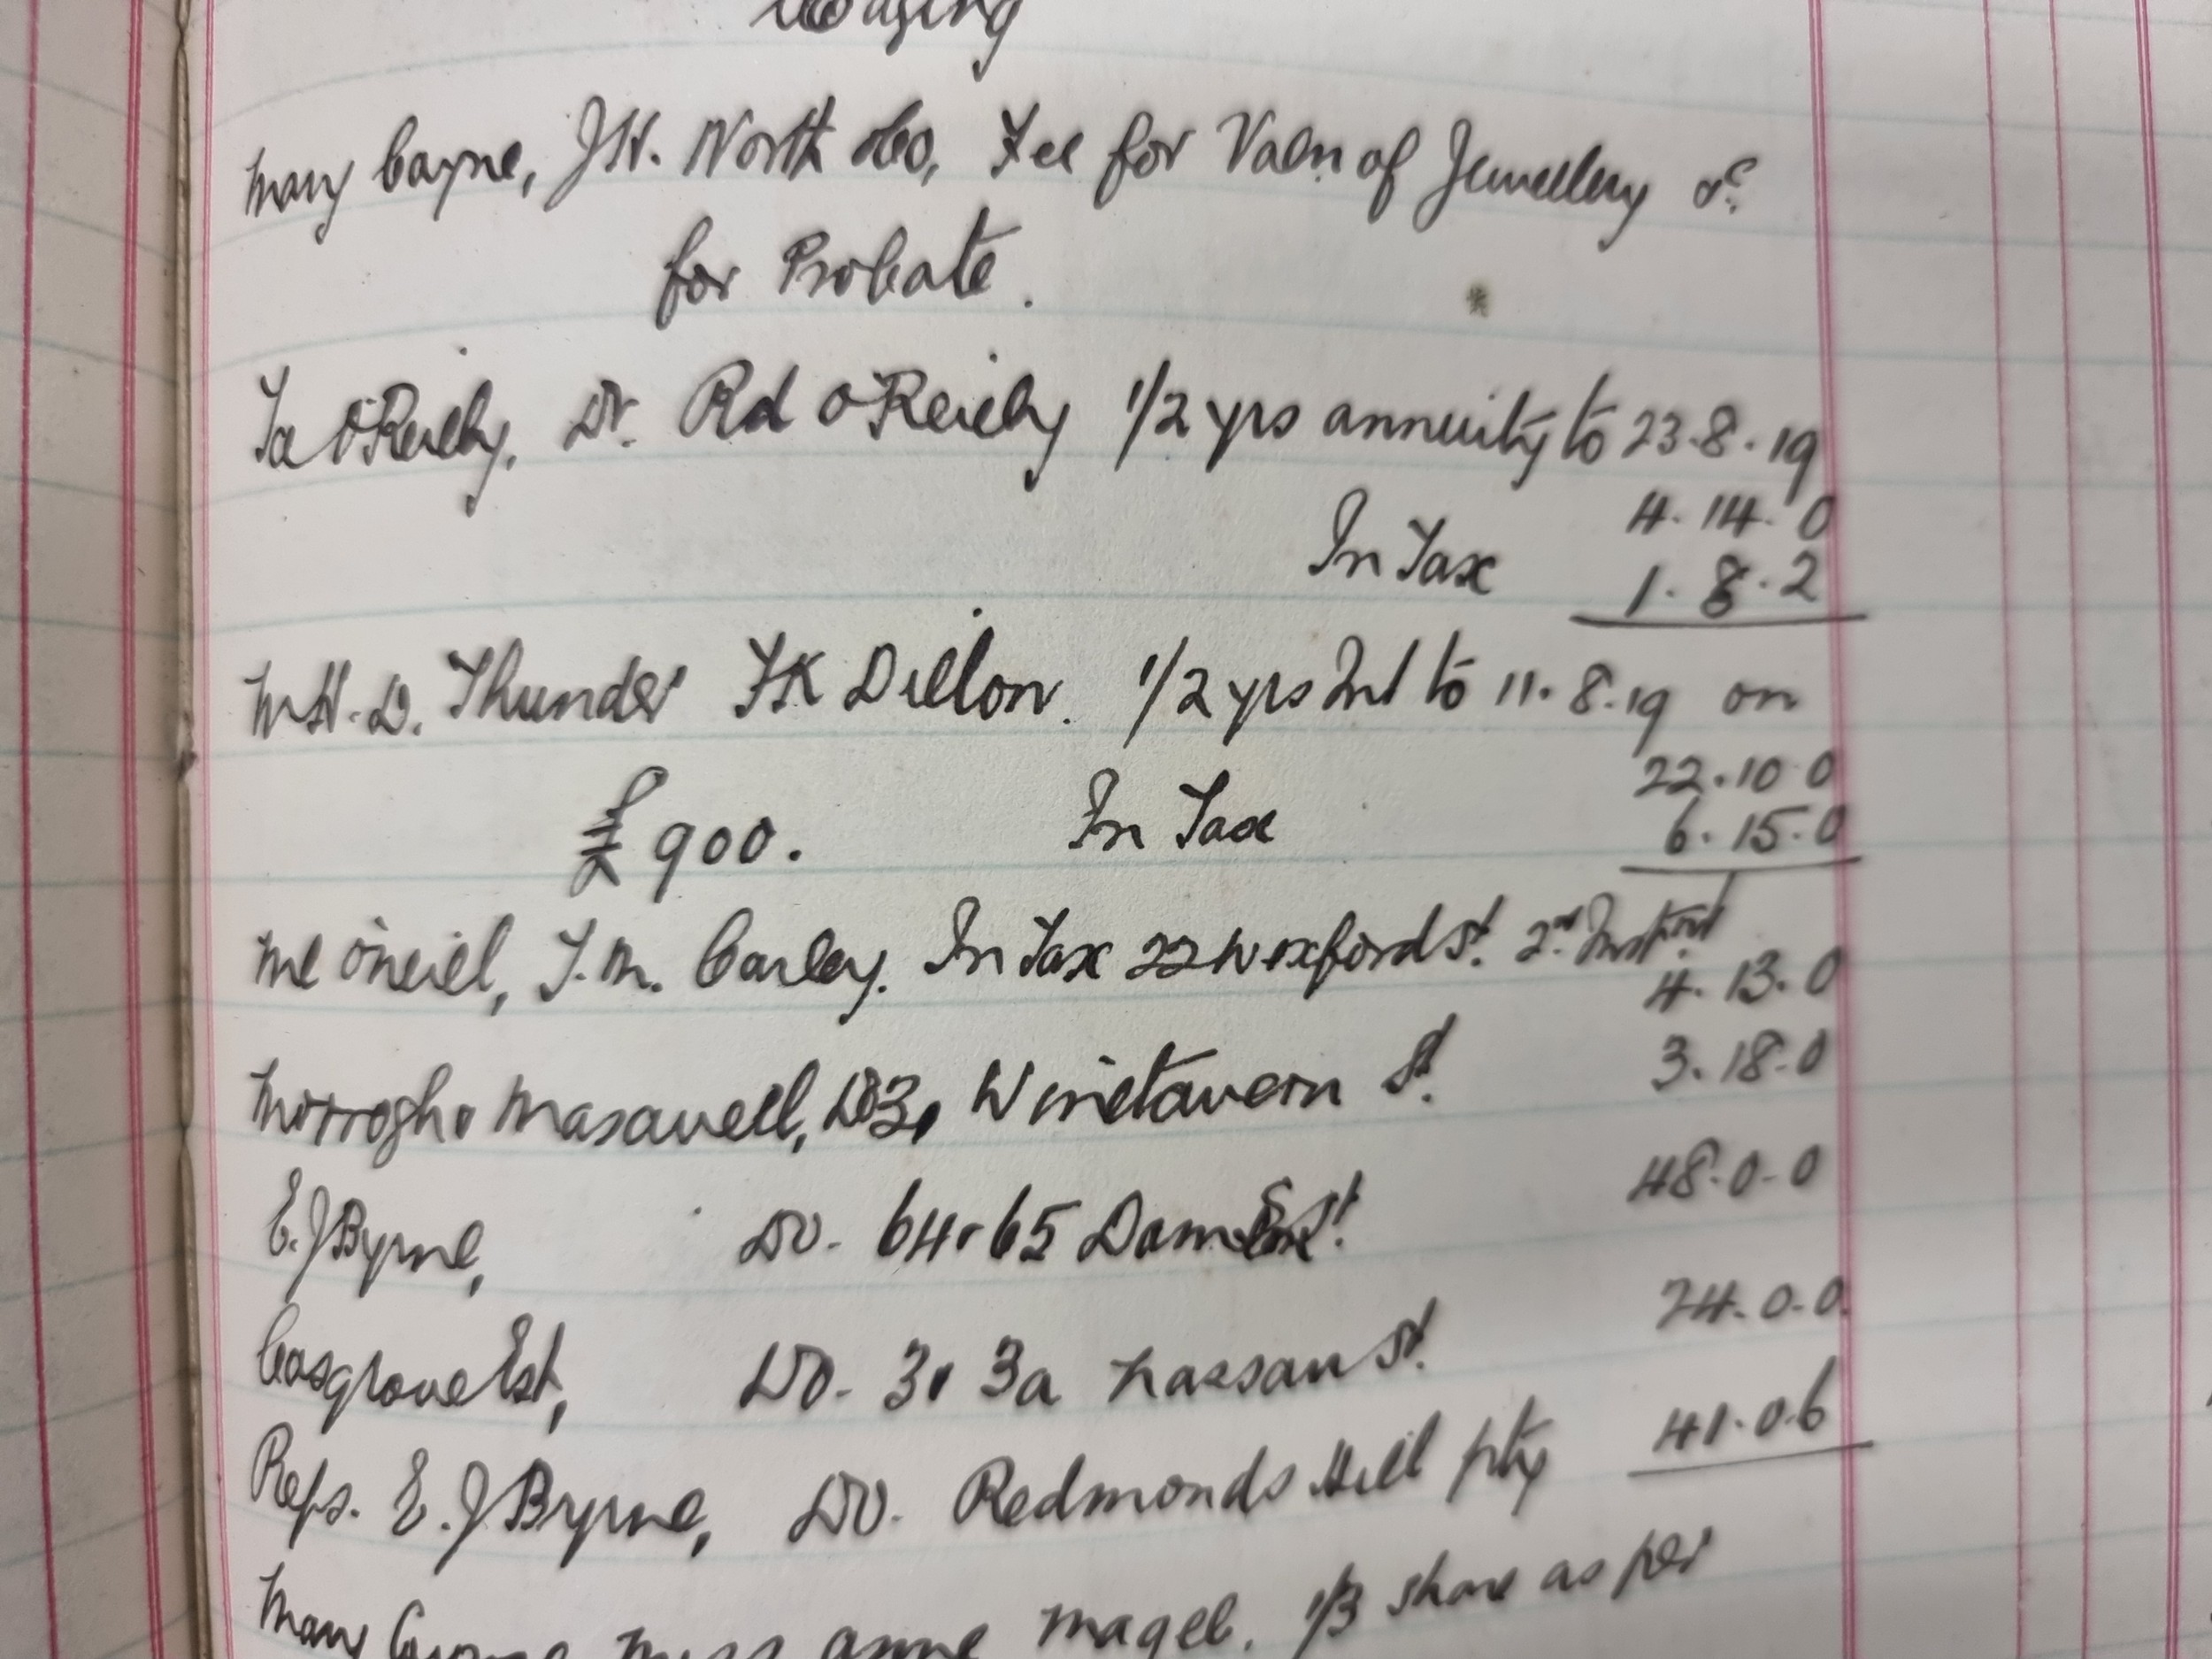 Mary Coyne, J.H. North & Co, Fee for Valn of Jewellery &c
for Probate.
Jas O'Reilly, Dr. Rd O'Reilly 1/2 yrs annuity to 23.8.19
4.14.0
In Tax 1.8.2
W.H.D. Thunder FK Dillon. 1/2 yrs Int to 11.8.19 on
22.10.0
£900. In Tax 6.15.0
Ml O'Neill, T.M. Carley. In Tax 22 Wexford St. 2nd Instmt
4.13.0
Morrogh & Maxwell, Do 3, Winetavern St. 3.18.0
E.J Byrne, Do. 64.65 Dame St. 48.0.0
Cosgrove Est, Do. 3 & 3a Nassau St. 24.0.0
Reps. E.J Byrne, Do. Redmonds Hill pty 41.0.6
Mary Coyne Miss Anne Magee. 1/3 share as per